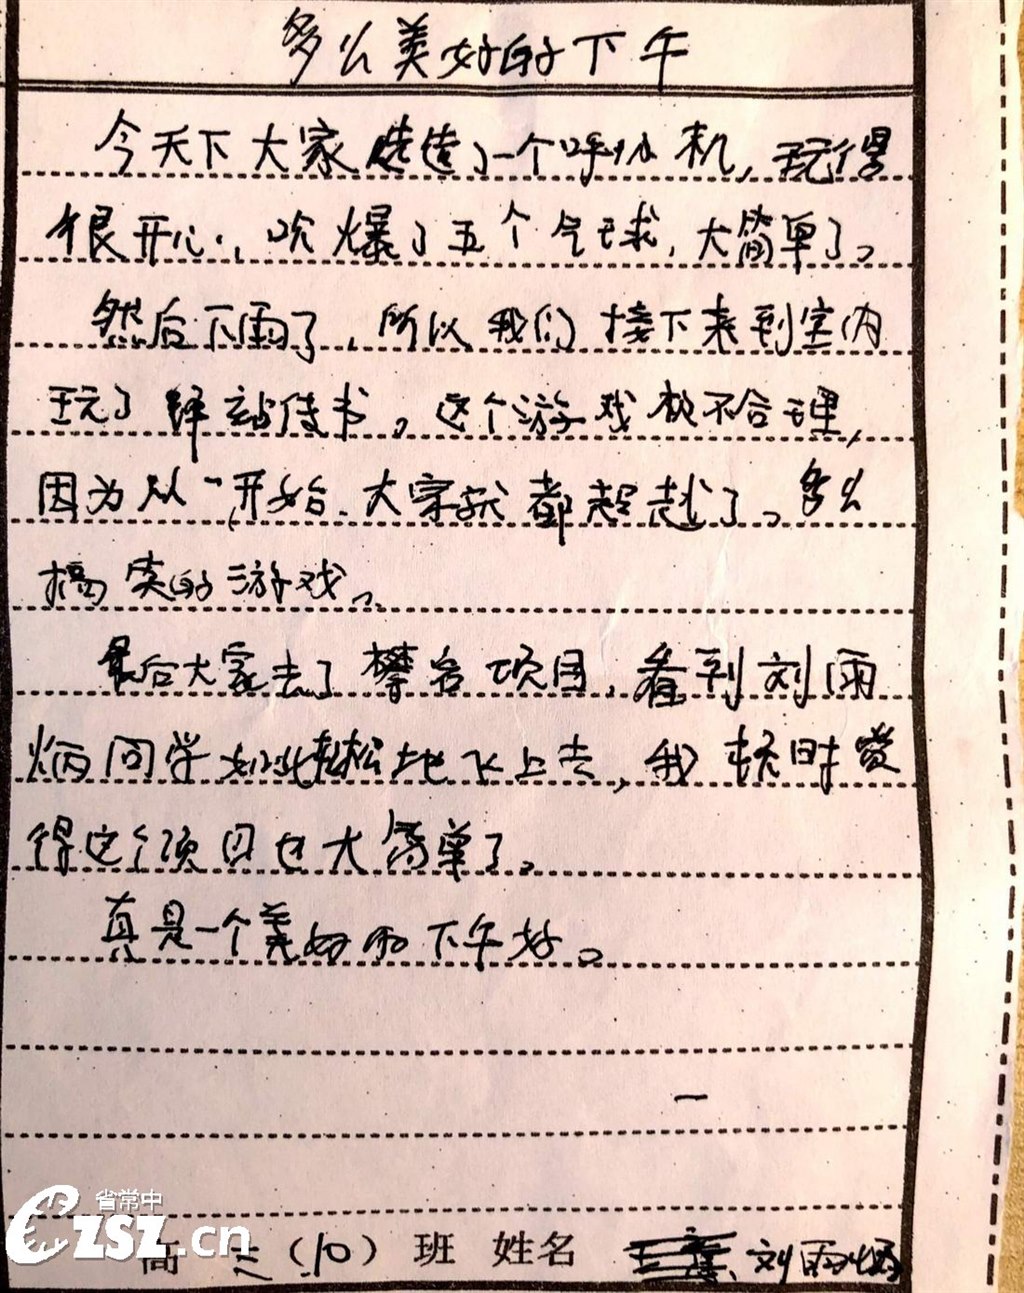 多么美好的下午
今天下大家造了一个呼吸机，玩得
很开心，吹爆了五个气球，大简单了。
然后下雨了，所以我们接下来到室内
玩了驿站传书。这个游戏很不合理，
因为从一开始大家就都超越了。多么
搞笑的游戏。
最后大家去了攀岩项目，看到刘雨
炳同学如此轻松地飞上去，我顿时觉
得这个项目也大简单了。
真是一个美好的下午好。
省常中
CZSZ.cn
高三（10）班 姓名 刘雨炳